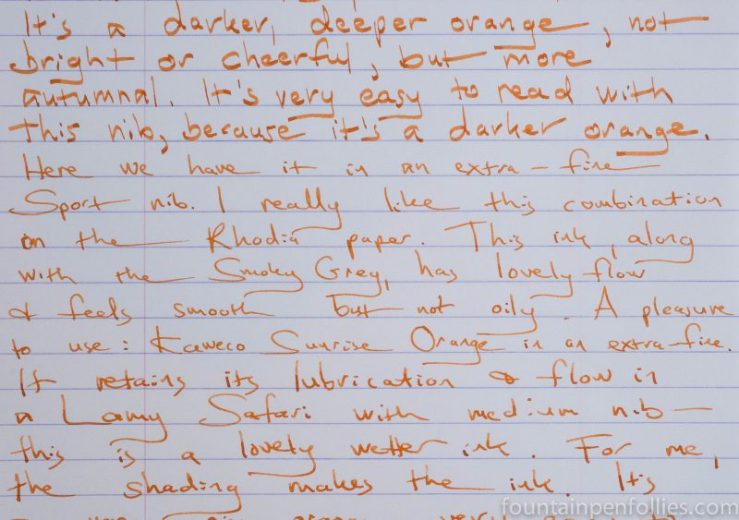 It's a darker, deeper orange, not
bright or cheerful, but more
autumnal. It's very easy to read with
this nib, because it's a darker orange.
Here we have it in an extra-fine
Sport nib. I really like this combination
on the Rhodia paper. This ink, along
with the Smoky Grey, has lovely flow
& feels smooth but not oily. A pleasure
to use: Kaweco Sunrise Orange in an extra-fine.
It retains its lubrication & flow in
a Lamy Safari with medium nib—
this is a lovely wetter ink. For me,
the shading makes the ink. It's
fountainpenfollies.com